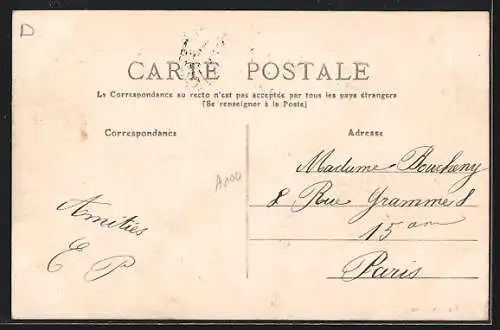 D
CARTE POSTALE
La Correspondance au recto n'est pas acceptée par tous les pays étrangers
(Se renseigner à la Poste)
Correspondance
Adresse
Madame Boucheny
8 Rue Gramme 8
15 em
Paris
Amitiés
E P